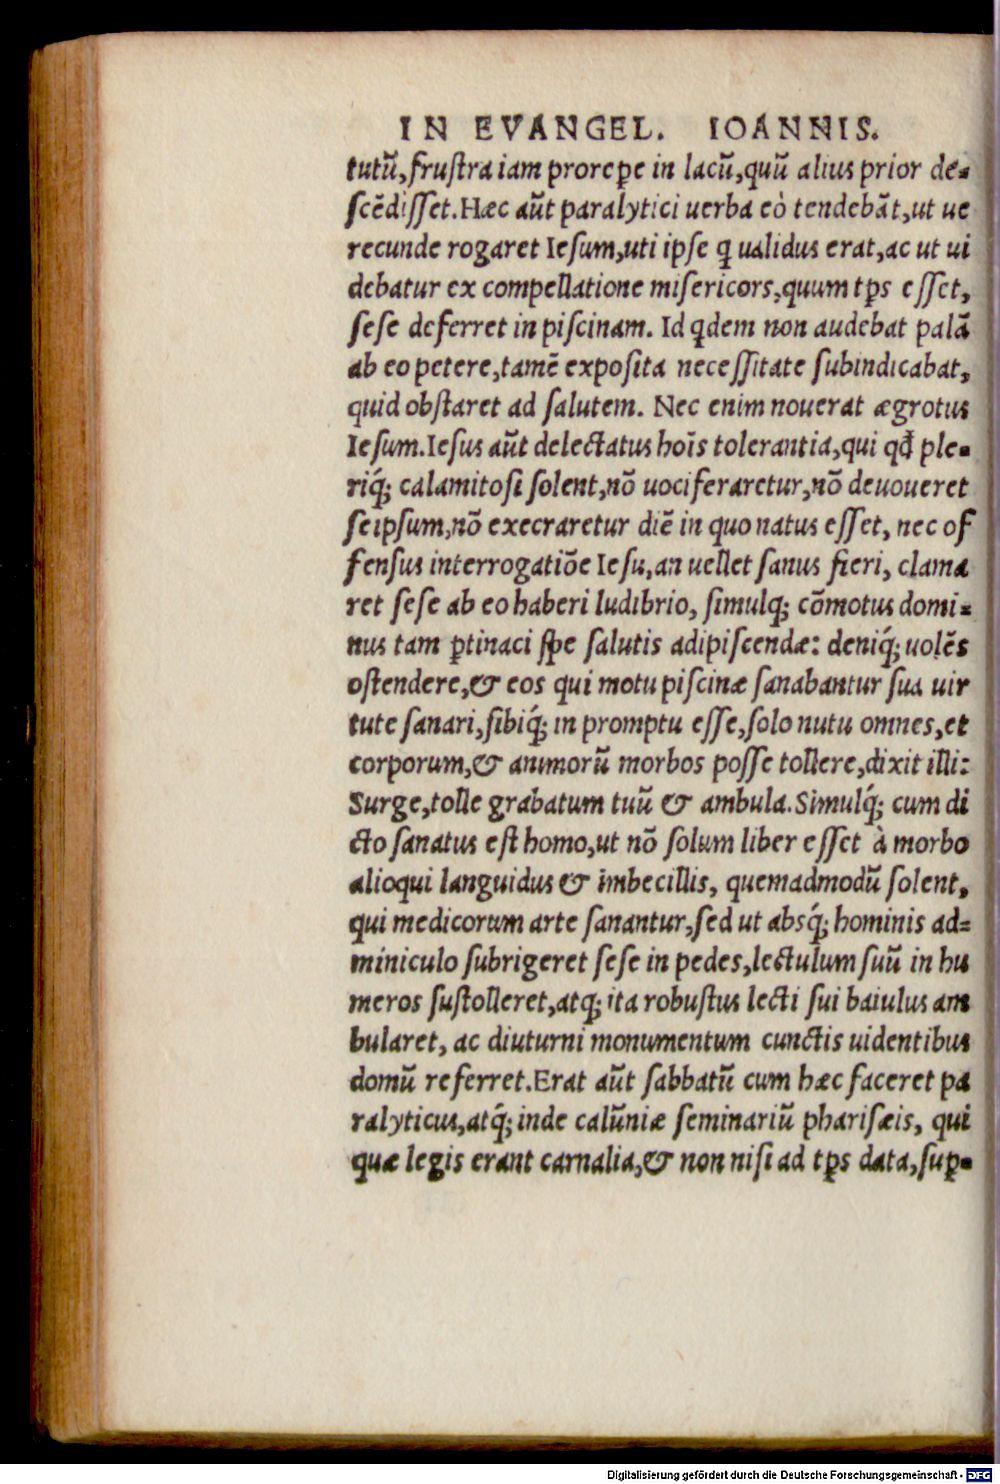 IN EVANGEL. IOANNIS.
tutũ,frustra iam prorepe in lacũ,quũ alius prior de-
scẽdisset.Hæc aũt paralytici uerba eò tendebãt,ut ue
recunde rogaret Iesum,uti ipse q ualidus erat,ac ut ui
debatur ex compellatione misericors,quum tps esset,
sese deferret in piscinam. Id qdem non audebat palã
ab eo petere,tamẽ exposita necessitate subindicabat,
quid obstaret ad salutem. Nec enim nouerat ægrotus
Iesum.Iesus aũt delectatus hoīs tolerantia,qui qđ ple-
riq́; calamitosi solent,nõ uociferaretur,nõ deuoueret
seipsum,nõ execraretur diẽ in quo natus esset, nec of
fensus interrogatiõe Iesu,an uellet sanus fieri, clama
ret sese ab eo haberi ludibrio, simulq; cõmotus domi-
nus tam ꝑtinaci spe salutis adipiscendæ: deniq́; uolẽs
ostendere,& eos qui motu piscinæ sanabantur sua uir
tute sanari,sibiq́; in promptu esse,solo nutu omnes,et
corporum,& animorũ morbos posse tollere,dixit illi:
Surge,tolle grabatum tuũ & ambula.Simulq́; cum di
cto sanatus est homo,ut nõ solum liber esset à morbo
alioqui languidus & imbecillis, quemadmodũ solent,
qui medicorum arte sanantur,sed ut absq́; hominis ad-
miniculo subrigeret sese in pedes,lectulum suũ in hu
meros sustolleret,atq; ita robustus lecti sui baiulus am
bularet, ac diuturni monumentum cunctis uidentibus
domũ referret.Erat aũt sabbatũ cum hæc faceret pa
ralyticus,atq́; inde calũniæ seminariũ pharisæis, qui
quæ legis erant carnalia,& non nisi ad tps data,suꝑ-
Digitalisierung gefördert durch die Deutsche Forschungsgemeinschaft - DFG